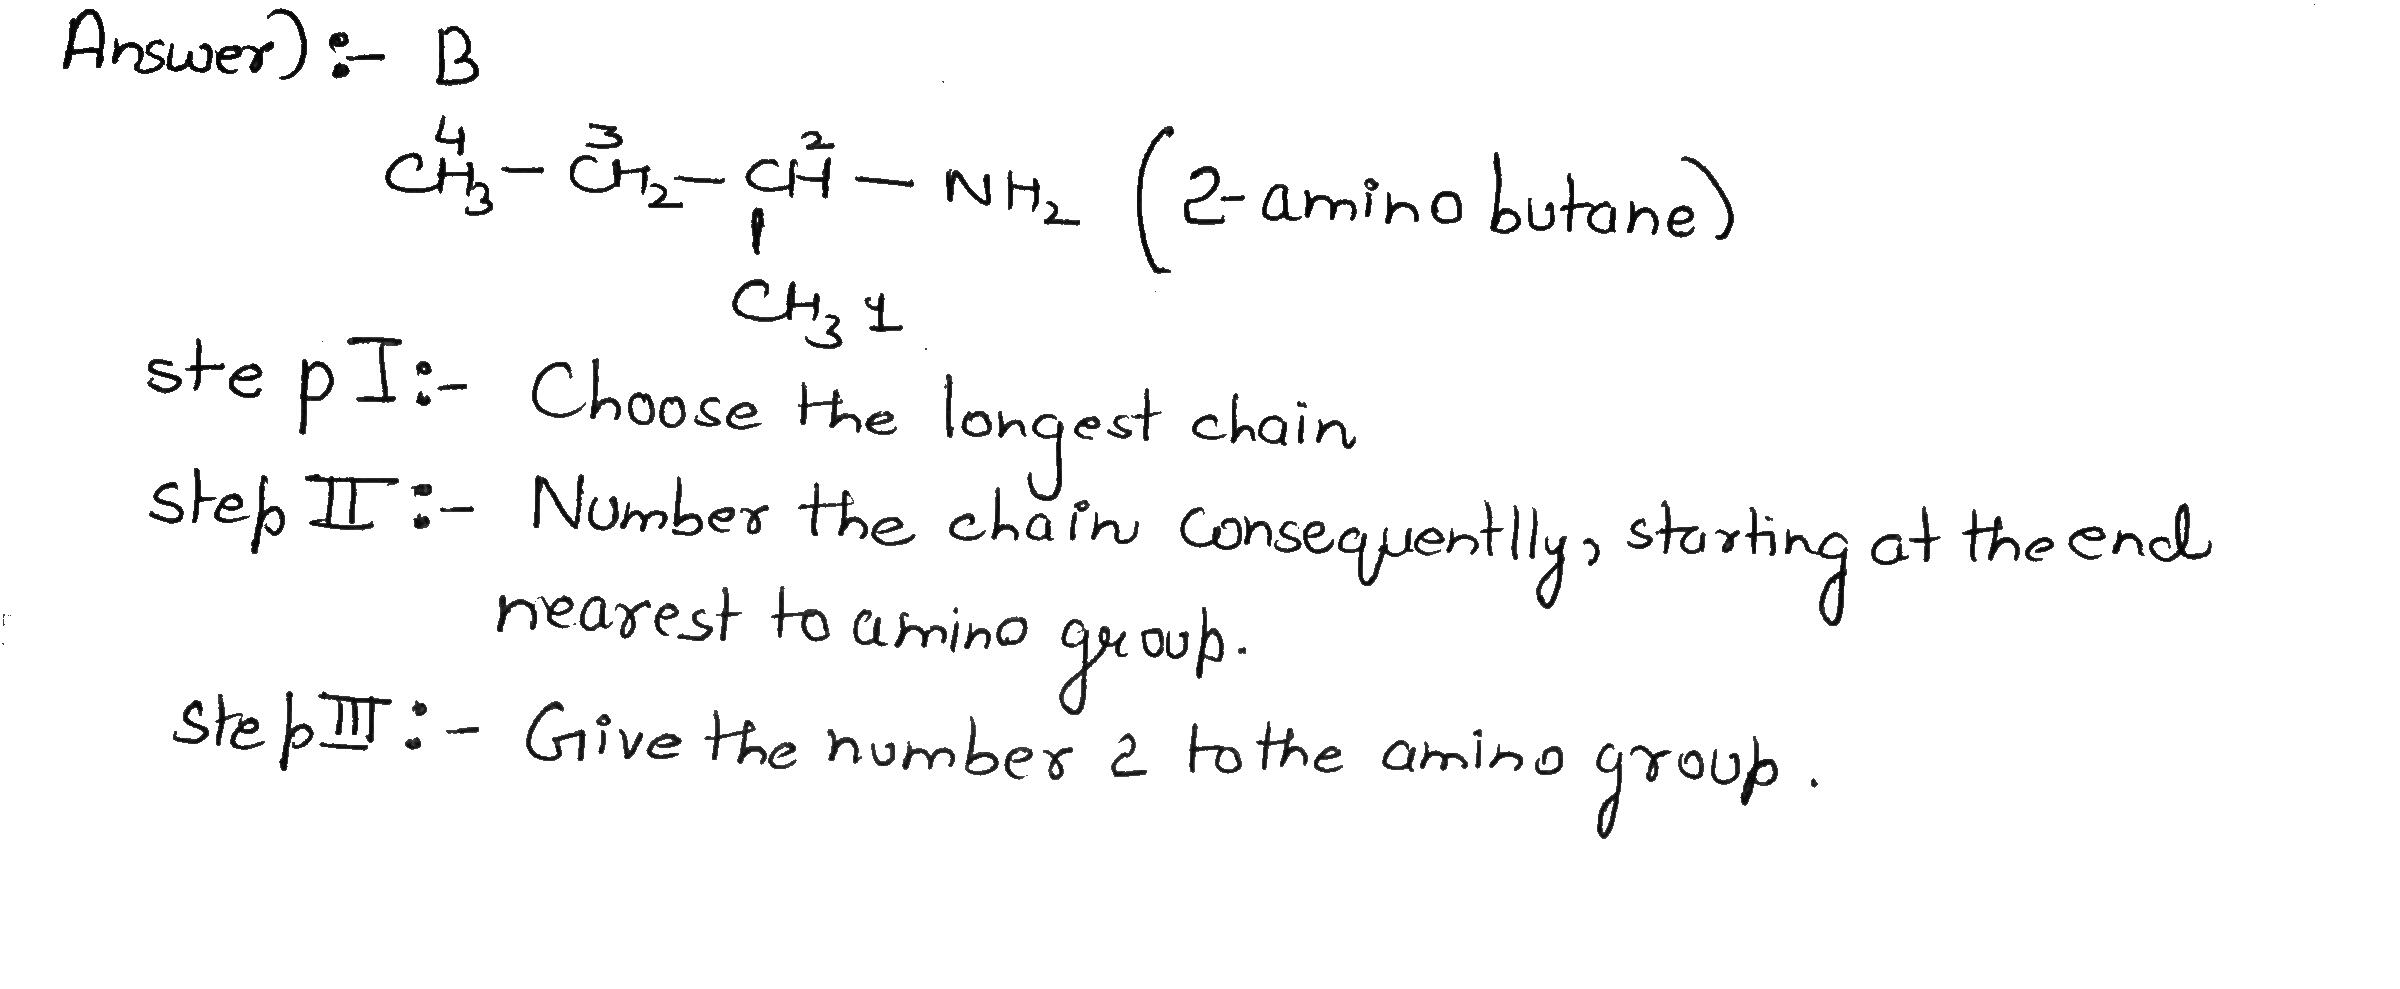 Answer) :- B
4 3 2
CH₃ - CH₂ - CH - NH₂ (2-amino butane)
CH₃ 1
step I :- Choose the longest chain
step II :- Number the chain consequentlly, starting at the end
nearest to amino group.
step III :- Give the number 2 to the amino group.